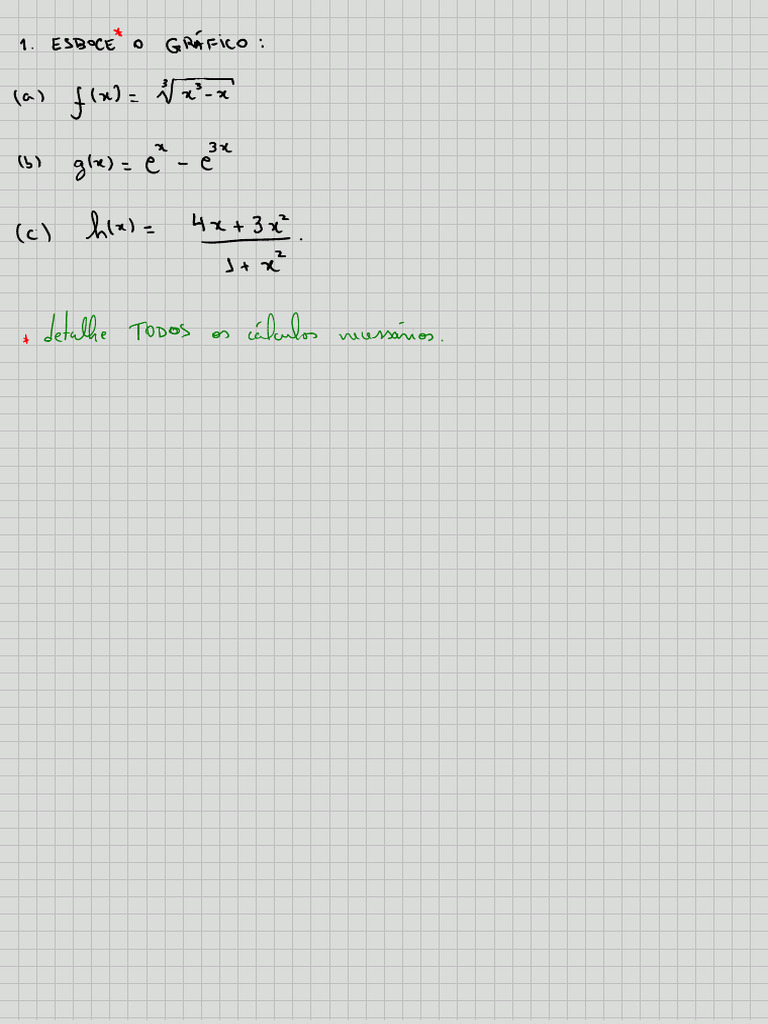 1. ESBOCE* O GRÁFICO:
(a) f(x) = ∛(x³-x)
(b) g(x) = eˣ - e³ˣ
(c) h(x) = (4x + 3x²)/(1 + x²).
* detalhe TODOS os cálculos necessários.